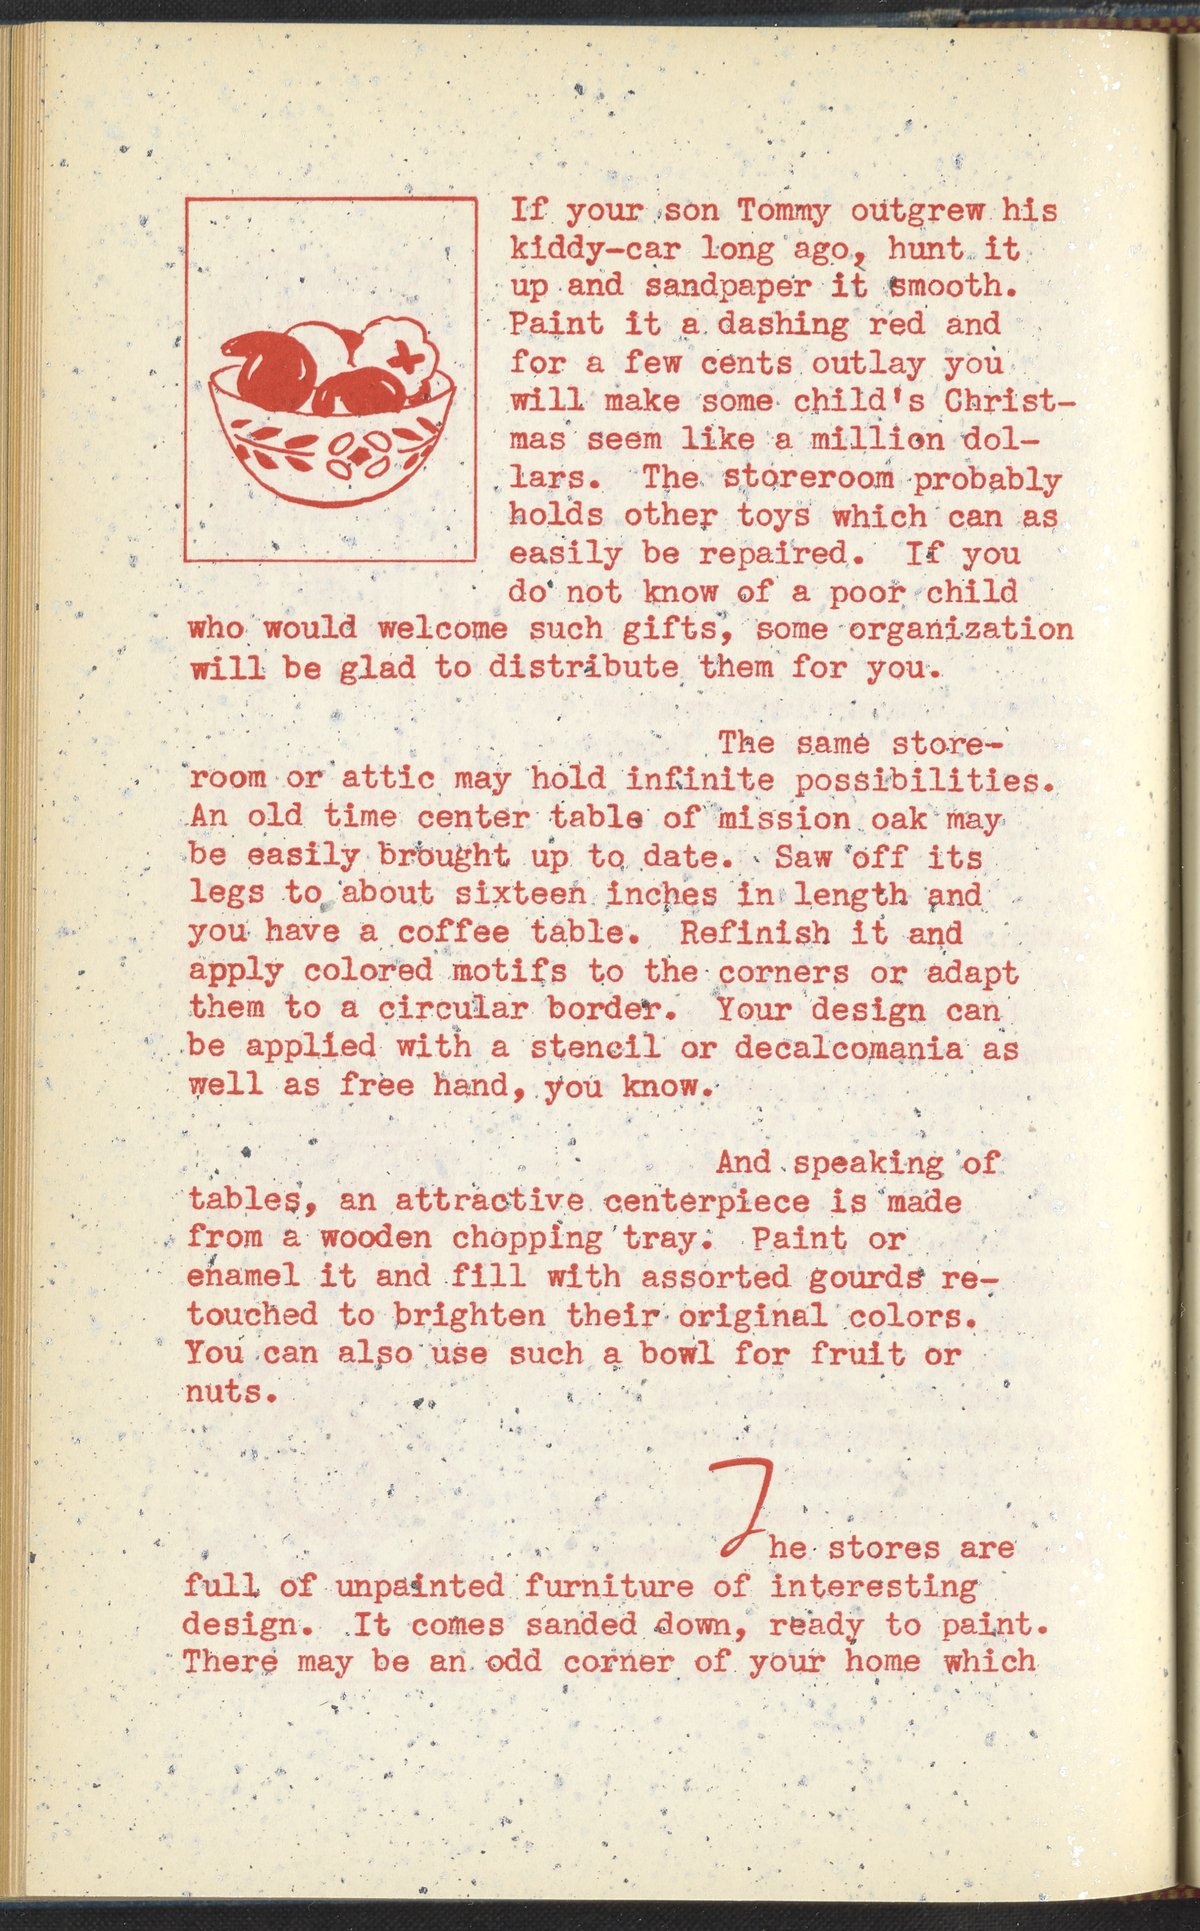 If your son Tommy outgrew his
kiddy-car long ago, hunt it
up and sandpaper it smooth.
Paint it a dashing red and
for a few cents outlay you
will make some child's Christ-
mas seem like a million dol-
lars.  The storeroom probably
holds other toys which can as
easily be repaired.  If you
do not know of a poor child
who would welcome such gifts, some organization
will be glad to distribute them for you.
The same store-
room or attic may hold infinite possibilities.
An old time center table of mission oak may
be easily brought up to date.  Saw off its
legs to about sixteen inches in length and
you have a coffee table.  Refinish it and
apply colored motifs to the corners or adapt
them to a circular border.  Your design can
be applied with a stencil or decalcomania as
well as free hand, you know.
And speaking of
tables, an attractive centerpiece is made
from a wooden chopping tray.  Paint or
enamel it and fill with assorted gourds re-
touched to brighten their original colors.
You can also use such a bowl for fruit or
nuts.
The stores are
full of unpainted furniture of interesting
design.  It comes sanded down, ready to paint.
There may be an odd corner of your home which